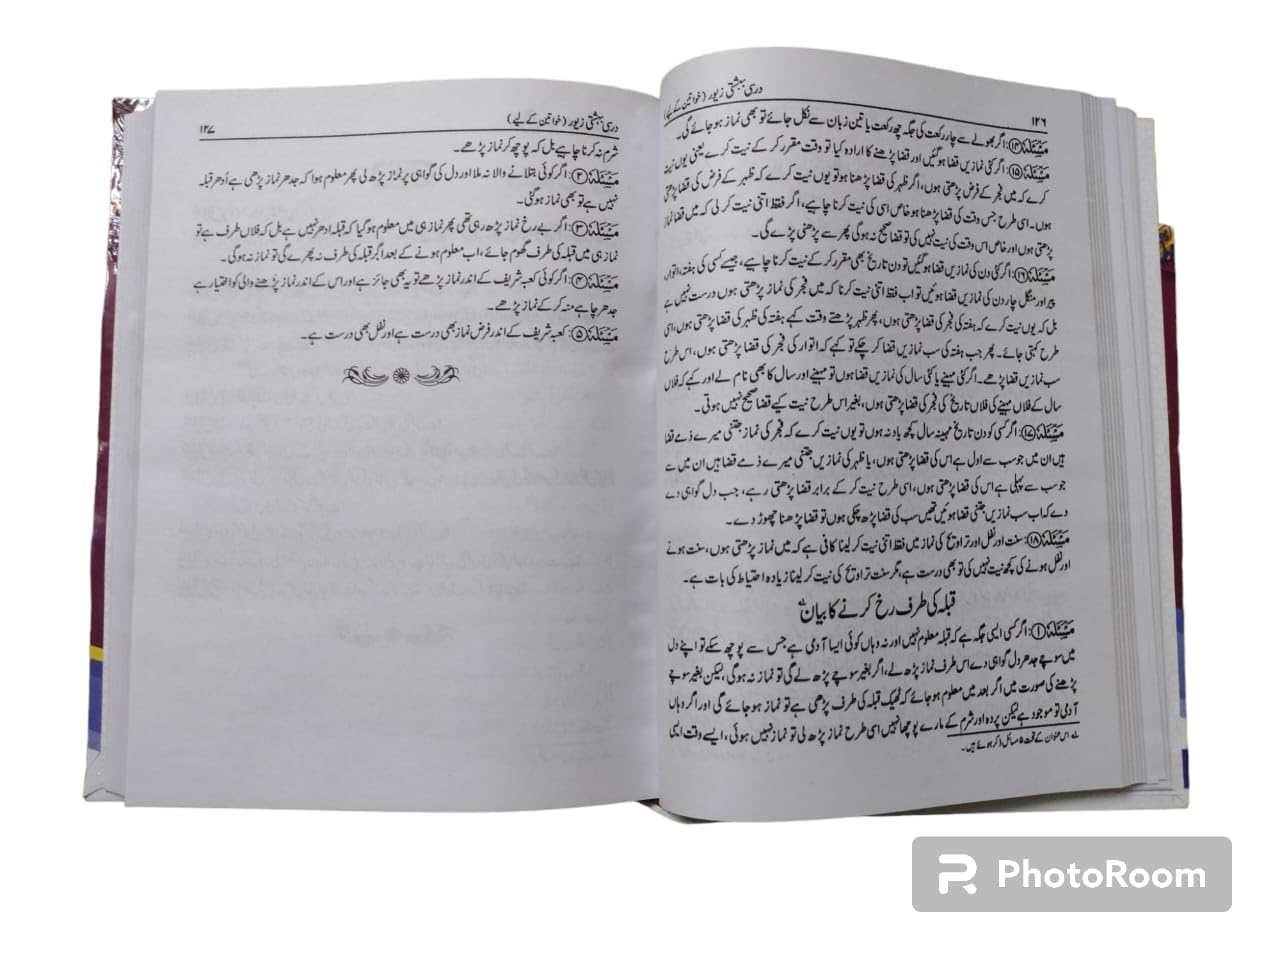 ۱۲۶
درسی بہشتی زیور (خواتین کے لیے)
مسئلہ (۱۴): اگر بھولے سے چار رکعت کی جگہ چھ رکعت یا تین زبان سے نکل جائے تو بھی نماز ہو جائے گی۔
مسئلہ (۱۵): اگر کئی نمازیں قضا ہو گئیں اور قضا پڑھنے کا ارادہ کیا تو وقت مقرر کر کے نیت کرے یعنی یوں نیت
کرے کہ میں فجر کے فرض پڑھتی ہوں، اگر ظہر کی قضا پڑھنا ہو تو یوں نیت کرے کہ ظہر کے فرض کی قضا پڑھتی
ہوں۔ اسی طرح جس وقت کی قضا پڑھنا ہو خاص اسی کی نیت کرنا چاہیے، اگر فقط اتنی نیت کر لی کہ میں قضا نماز
پڑھتی ہوں اور خاص اس وقت کی نیت نہیں کی تو قضا صحیح نہ ہوگی پھر سے پڑھنی پڑے گی۔
مسئلہ (۱۶): اگر کئی دن کی نمازیں قضا ہو گئیں تو دن تاریخ بھی مقرر کر کے نیت کرنا چاہیے، جیسے کسی کی ہفتہ، اتوار،
پیر اور منگل چار دن کی نمازیں قضا ہوئیں تو اب فقط اتنی نیت کرنا کہ میں فجر کی نماز قضا پڑھتی ہوں درست نہیں ہے
بل کہ یوں نیت کرے کہ ہفتہ کی فجر کی قضا پڑھتی ہوں، پھر ظہر پڑھتے وقت کہے ہفتہ کی ظہر کی قضا پڑھتی ہوں، اسی
طرح کہتی جائے۔ پھر جب ہفتہ کی سب نمازیں قضا کر چکے تو کہے کہ اتوار کی فجر کی قضا پڑھتی ہوں، اس طرح
سب نمازیں قضا پڑھے۔ اگر کئی مہینے یا کئی سال کی نمازیں قضا ہوں تو مہینے اور سال کا بھی نام لے اور کہے کہ فلاں
سال کے فلاں مہینے کی فلاں تاریخ کی فجر کی قضا پڑھتی ہوں، بغیر اس طرح نیت کیے قضا صحیح نہیں ہوتی۔
مسئلہ (۱۷): اگر کسی کو دن تاریخ مہینہ سال کچھ یاد نہ ہوں تو یوں نیت کرے کہ فجر کی نماز جتنی میرے ذمے قضا
ہیں ان میں جو سب سے اول ہے اس کی قضا پڑھتی ہوں، یا ظہر کی نمازیں جتنی میرے ذمے قضا ہیں ان میں سے
جو سب سے پہلی ہے اس کی قضا پڑھتی ہوں، اسی طرح نیت کر کے برابر قضا پڑھتی رہے، جب دل گواہی دے
دے کہ اب سب نمازیں جتنی قضا ہوئیں تھیں سب کی قضا پڑھ چکی ہوں تو قضا پڑھنا چھوڑ دے۔
مسئلہ (۱۸): سنت اور نفل اور تراویح کی نماز میں فقط اتنی نیت کر لینا کافی ہے کہ میں نماز پڑھتی ہوں، سنت ہونے
اور نفل ہونے کی کچھ نیت نہیں کی تو بھی درست ہے، مگر سنت تراویح کی نیت کر لینا زیادہ احتیاط کی بات ہے۔
قبلہ کی طرف رخ کرنے کا بیان لے
مسئلہ (۱): اگر کسی ایسی جگہ ہے کہ قبلہ معلوم نہیں اور نہ وہاں کوئی ایسا آدمی ہے جس سے پوچھ سکے تو اپنے دل
میں سوچے جدھر دل گواہی دے اس طرف نماز پڑھ لے، اگر بغیر سوچے پڑھ لے گی تو نماز نہ ہوگی، لیکن بغیر سوچے
پڑھنے کی صورت میں اگر بعد میں معلوم ہو جائے کہ ٹھیک قبلہ کی طرف پڑھی ہے تو نماز ہو جائے گی اور اگر وہاں
آدمی تو موجود ہے لیکن پردہ اور شرم کے مارے پوچھا نہیں اسی طرح نماز پڑھ لی تو نماز نہیں ہوئی، ایسے وقت ایسی
لے اس عنوان کے تحت ۵ مسائل ذکر ہوئے ہیں۔
درسی بہشتی زیور (خواتین کے لیے)
۱۲۷
شرم نہ کرنا چاہیے بل کہ پوچھ کر نماز پڑھے۔
مسئلہ (۲): اگر کوئی بتلانے والا نہ ملا اور دل کی گواہی پر نماز پڑھ لی پھر معلوم ہوا کہ جدھر نماز پڑھی ہے اُدھر قبلہ
نہیں ہے تو بھی نماز ہو گئی۔
مسئلہ (۳): اگر بے رخ نماز پڑھ رہی تھی پھر نماز ہی میں معلوم ہو گیا کہ قبلہ ادھر نہیں ہے بل کہ فلاں طرف ہے تو
نماز ہی میں قبلہ کی طرف گھوم جائے، اب معلوم ہونے کے بعد اگر قبلہ کی طرف نہ پھرے گی تو نماز نہ ہوگی۔
مسئلہ (۴): اگر کوئی کعبہ شریف کے اندر نماز پڑھے تو یہ بھی جائز ہے اور اس کے اندر نماز پڑھنے والی کو اختیار ہے
جدھر چاہے منہ کر کے نماز پڑھے۔
مسئلہ (۵): کعبہ شریف کے اندر فرض نماز بھی درست ہے اور نفل بھی درست ہے۔
PhotoRoom